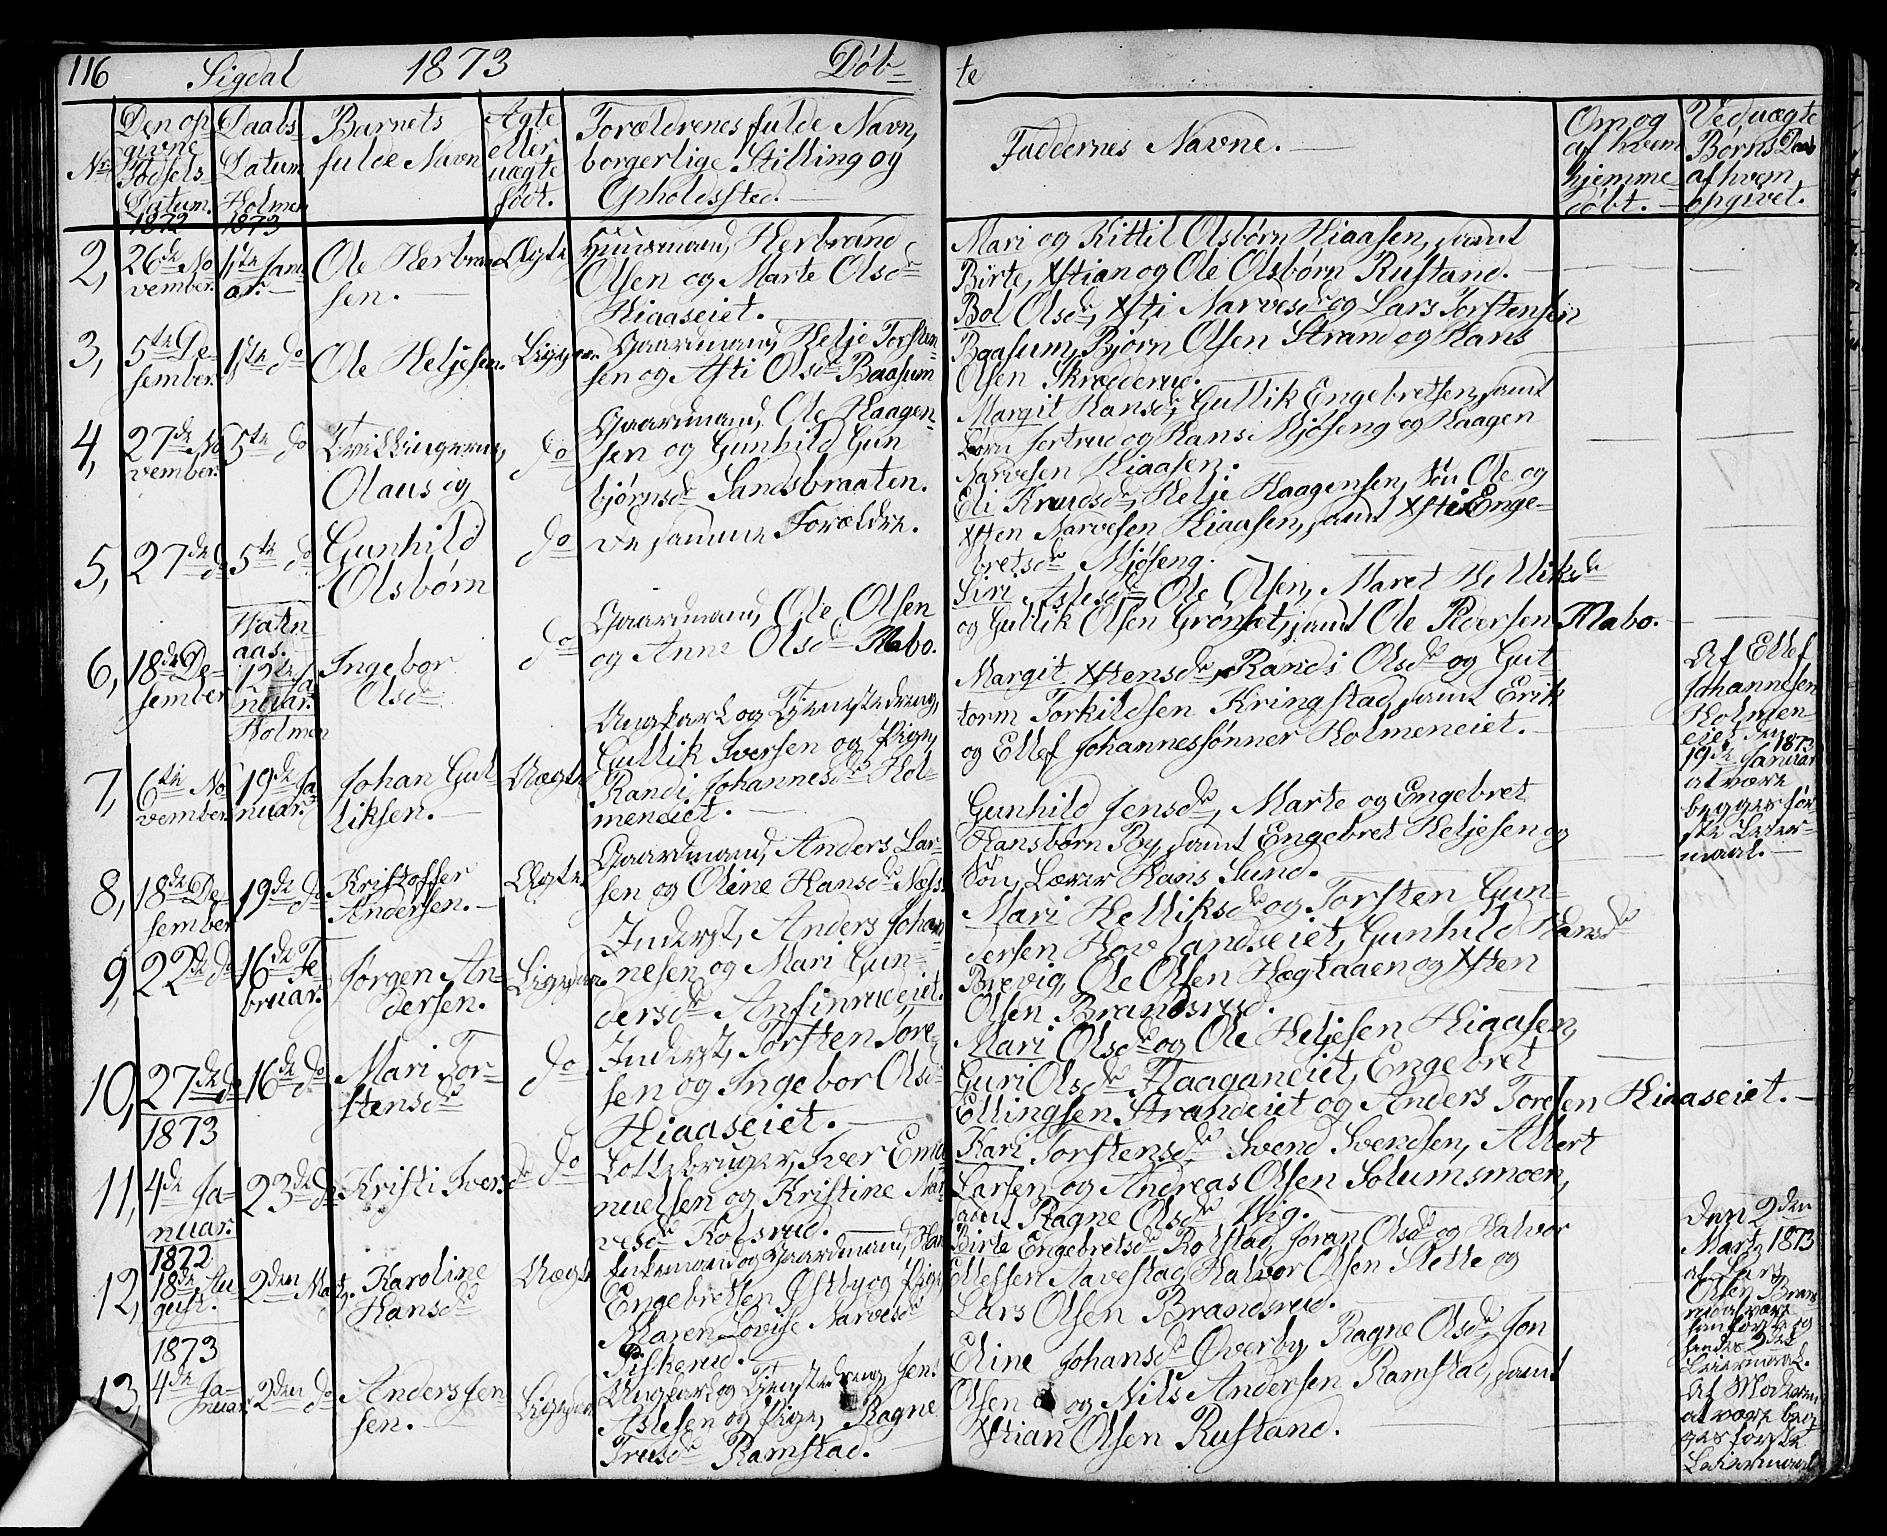 116 Sigdal 1873 Døb-
te
No. Den opgivne Fødsels-Datum. 1872
Daabs-Datum Holmen 1873
Barnets fulde Navn
Ægte eller uægte født.
Forældrenes fulde Navn, borgerlige Stilling og Opholdssted.
Faddernes Navne.
Om og af hvem hjemmedøbt.
Ved uægte Børns Daab af hvem opgivet.
2, 26de November. 1ste Januar. Ole Herbrandsen. Ægte
Huusmand, Herbrand
Olsen og Marte Olsdr
Hiaaseiet.
Mari og Kittil Olsbørn Hiaasen, samt
Birte, Xstian og Ole Olsbørn Rustand.
3, 5te Desember. 1ste do Ole Heljesen. Ligesaa.
Gaardmand, Helje Torsten-
sen og Asti Olsdr Baasum
Bol Olsdr, Xsti Narvesdr og Lars Torstensen
Baasum, Bjørn Olsen Strand og Hans
Olsen Skredderud.
4, 27de November. 5te do Tvillingerne, Olaus og do
Gaardmand, Ole Haagen-
sen og Gunhild Gun
bjørnsdr Sandsbraaten.
Margit Hansdr, Gullik Engebretsen, samt
Børn Jertrud og Hans Mjøseng og Haagen
Narvesen Hiaasen.
5, 27de do 5te do Gunhild Olsbørn do
De samme Forældre.
Eli Knudsdr, Helje Haagensen, Søn Ole og
Xsten Narvesen Hiaasen, samt Xsti Enge-
bretsdr Mjøseng.
6, 18de Desember Hatnaas. 12te Januar. Ingebor Olsdr do
Gaardmand, Ole Olsen
og Anne Olsdr Mabo.
Siri Aslesdr Ole Olsen, Maret Helliksdr
og Gullik Olsen Grønset, samt Ole Pedersen Mabo.
7, 6te November. Holmen 19de Januar. Johan Gulliksen. Uægte
Ungkarl og Tjenestedreng,
Gullik Iversen og Pige,
Randi Johannesdr Hol-
meneiet.
Margit Xstensdr, Randi Olsdr og Gut
torm Torkildsen Kringstad, samt Erik
og Ellef Johannessønner Holmeneiet.
Af Ellef
Johannesen
Holmen-
eiet den
19de Januar 1873
at være
begges før-
ste Leier-
maal.
8, 18de Desember 19de do Kristoffer Andersen. Ægte
Gaardmand, Anders Lar-
sen og Oline Hansdr Næss.
Gunhild Jensdr, Marte og Engebret
Hansbørn By, samt Engebret Heljesen og
Søn, Lærer Hans Lund.
9, 22de do 16de Februar. Jørgen Andersen. Ligesaa.
Inderst, Anders Johan-
nesen og Mari Gun-
dersdr Anfinrudeiet.
Mari Helliksdr og Torsten Gun-
dersen Hovlandseiet, Gunhild Hansdr
Brevig, Ole Olsen Hægtaaen og Xsten
Olsen Brandsrud.
10, 27de do 16de do Mari Torstensdr do
Inderst, Torsten Tore-
sen og Ingebor Olsdr
Hiaaseiet.
Mari Olsdr og Ole Heljesen Hiaasen,
Guri Olsdr Haaganeiet, Engebret
Ellingsen Strandeiet og Anders Toresen Hiaaseiet.
1873
11, 4de Januar. 23de do Kristi Iversdr do
Lottebruger, Iver Ema
nuelsen og Kristine Nar-
vesdr Kolsrud.
Kari Torstensdr Svend Svendsen, Albert
Larsen og Andreas Olsen Solumsmoen,
samt Ragne Olsdr
1872
12, 18de August. 2den Marts. Karoline Hansdr Uægte
Enkemand og Gaardmand, Han
Engebretsen Østby og Pige,
Maren Lovise Narvesdr
Fiskerud.
Birte Engebretsdr Rolstad, Joran Olsdr og Halvor
Ellefsen Aavestad, Halvor Olsen Slette og
Lars Olsen Brandsrud.
Den 2den
Marts 1873
af Lars
Olsen Brans
rud at være
hans første og
hendes 2det
Leiermaal.
1873
13, 4de Januar. 2den do Anders Jensen. Ligesaa
Ungkarl og Tjenstedreng, Jens
Aslesen og Pige, Ragne
Truesdr Ramstad.
Eline Johansdr Øverby, Ragne Olsdr, Jon
Olsen og Nils Andersen Ramstad, samt
Xstian Olsen Rustand.
Af Moderen
at være beg
ges første
Leiermaal